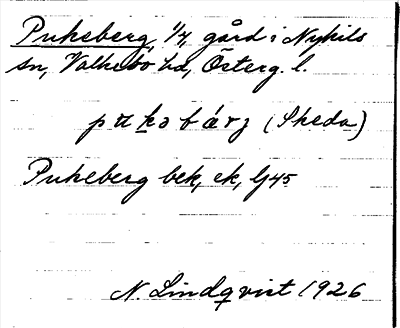 Pukeberg, 1/4, gård i Nykils
sn, Valkebo hd, Österg. l.
pukəbærj (Skeda)
Pukeberg bek, ek, Gj45
N. Lindqvist 1926